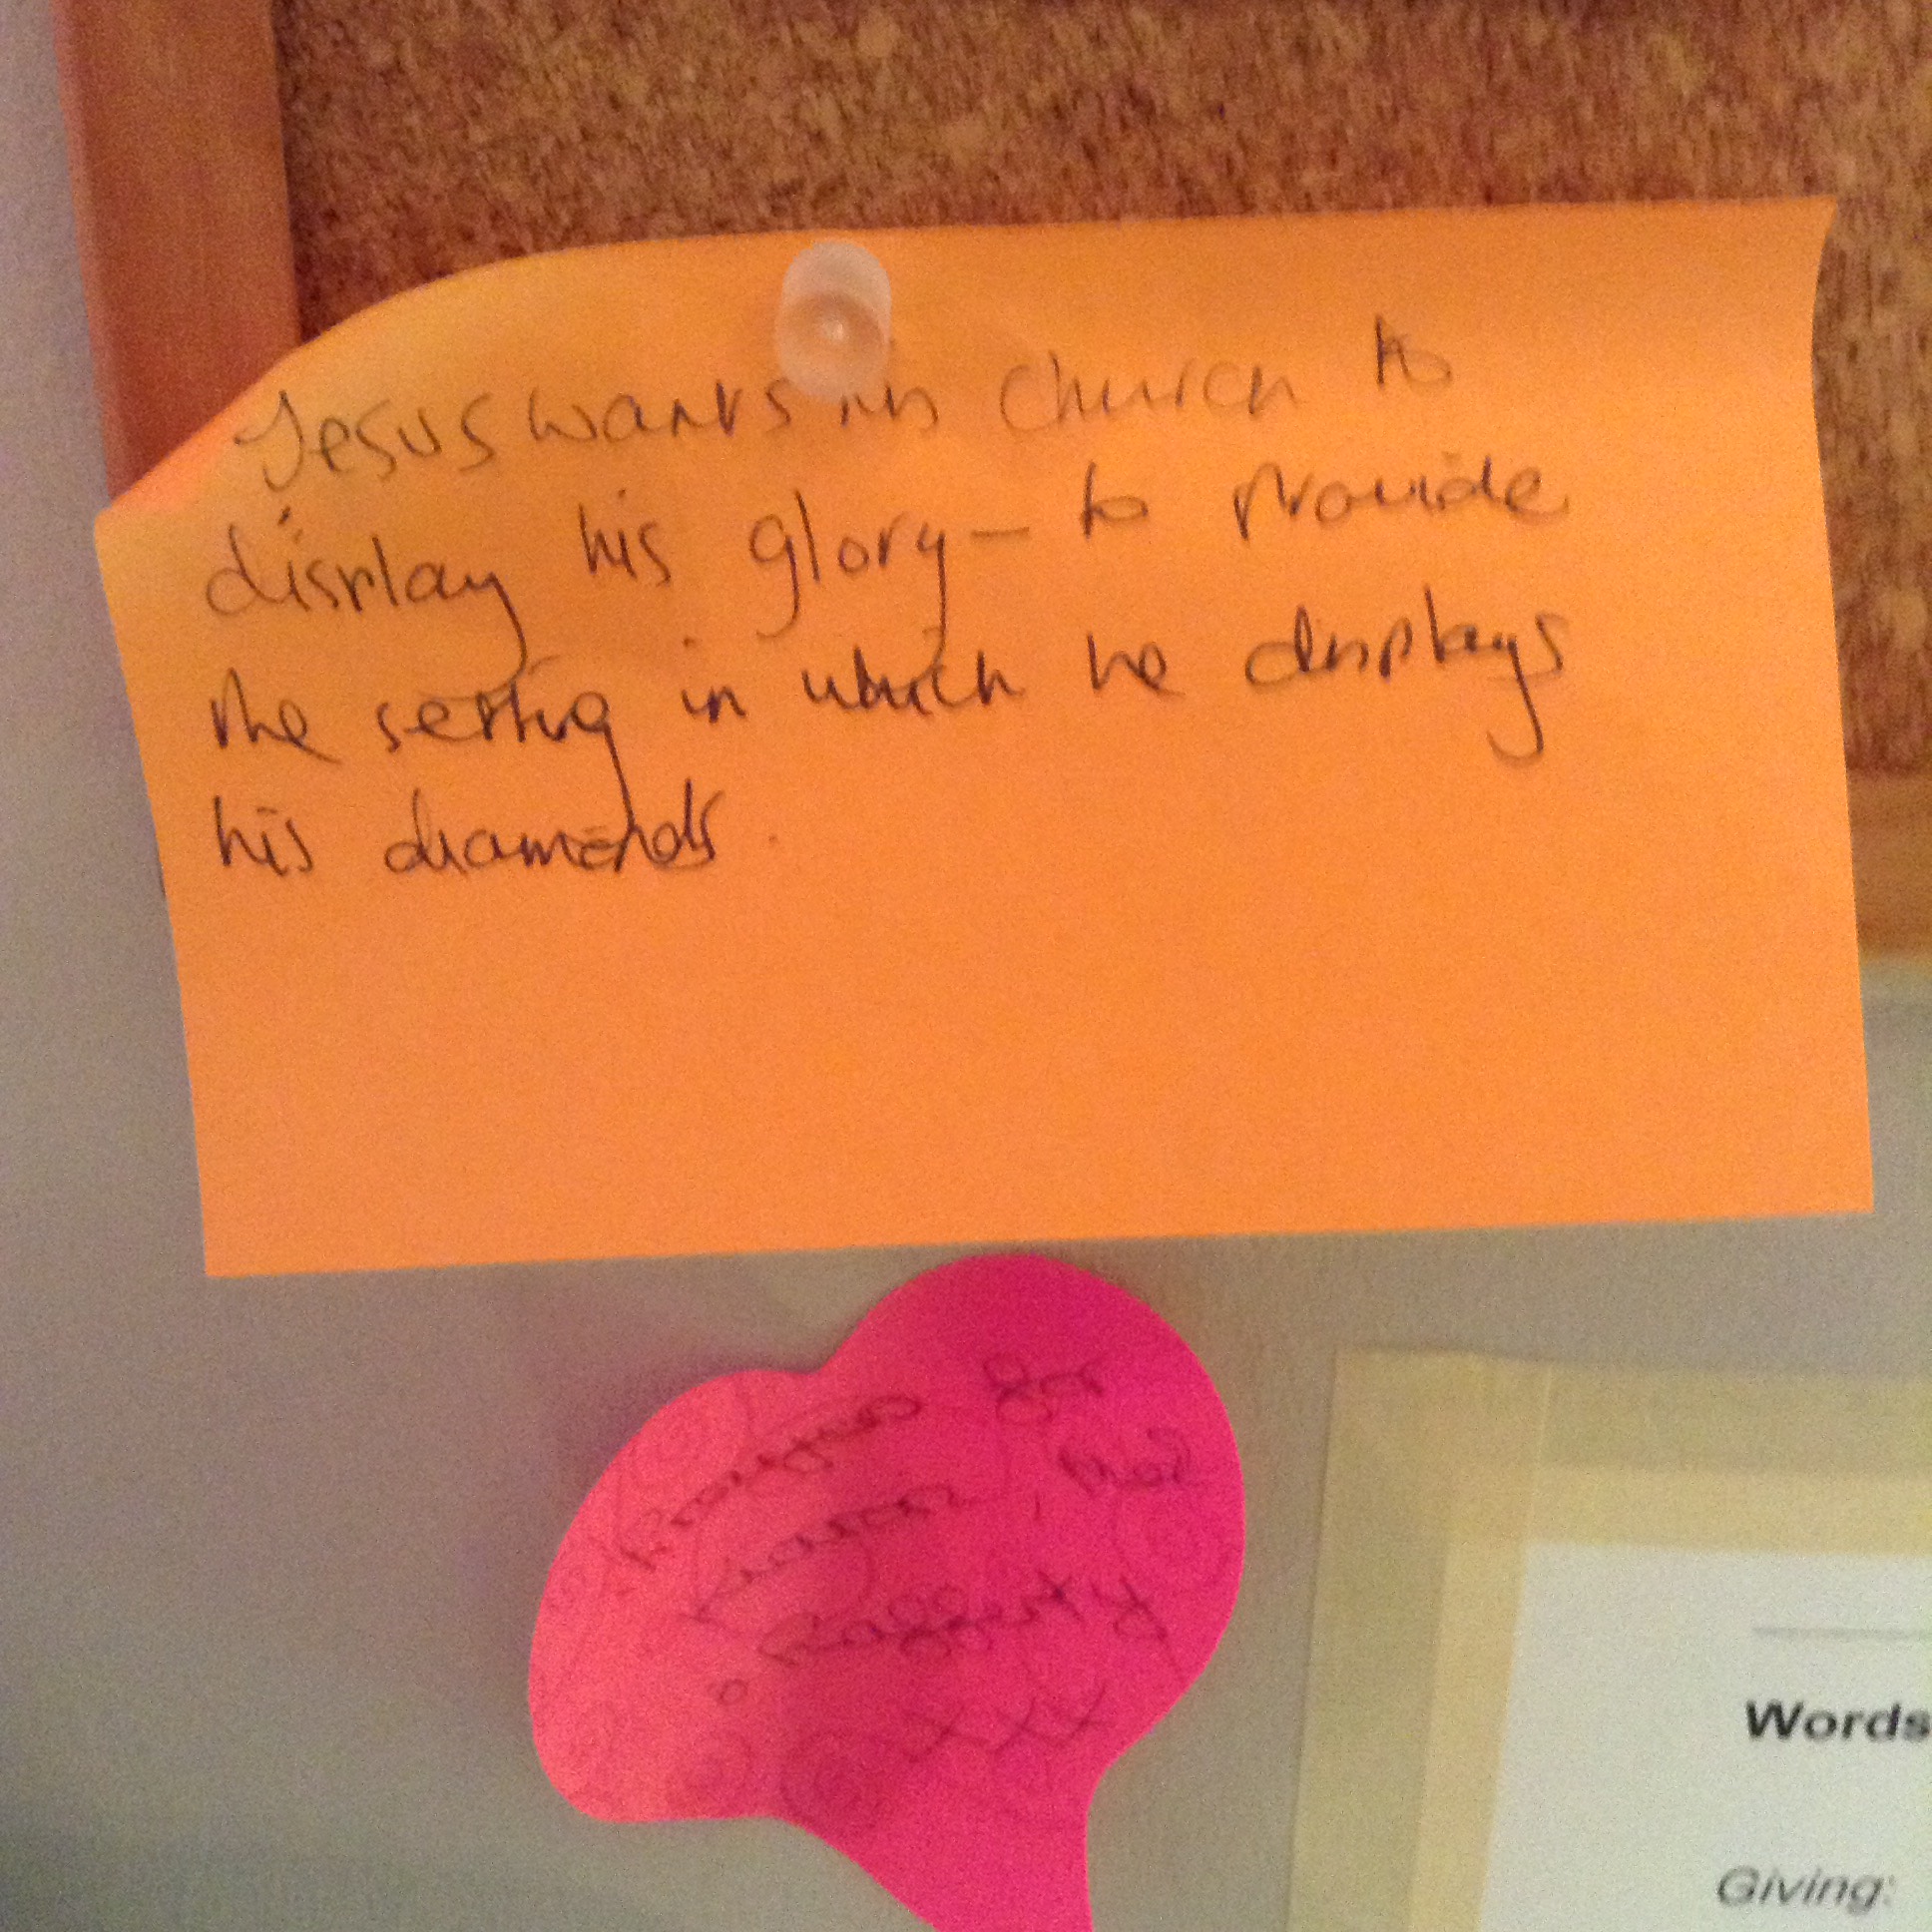 Jesus wants his church to
display his glory – to provide
the setting in which he displays
his diamonds.
for
&
Raggerty
xxx
Words
Giving: